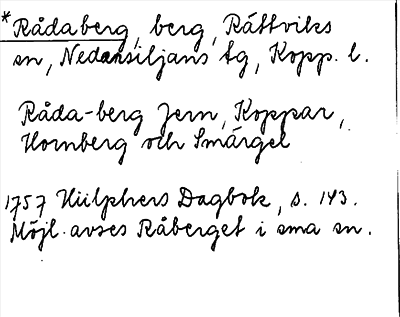 *Rådaberg, berg, Rättviks
sn, Nedansiljans tg, Kopp. l.
Råda-berg Jern, Koppar,
Hornberg och Smärgel
1757 Hülphers Dagbok, s. 143.
Möjl. avses Råberget i sma sn.